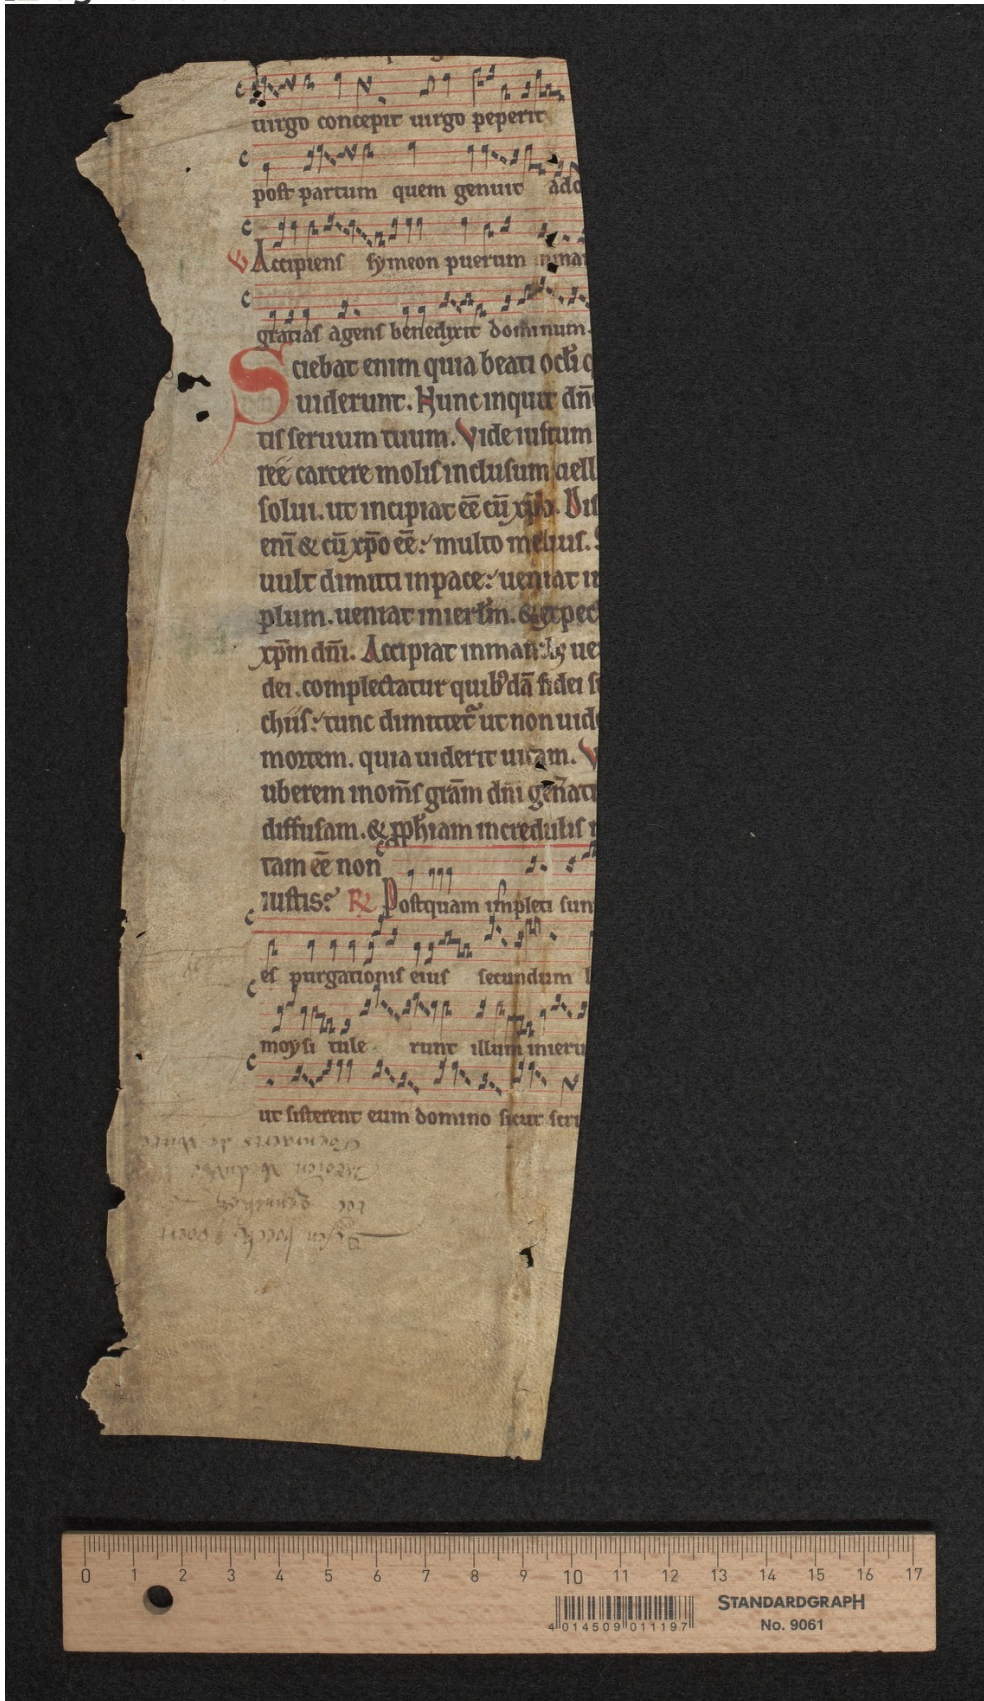 uirgo concepit uirgo peperit
post partum quem genuit ado
V Accipiens symeon puerum inma
gratias agens benedixit dominum.
Sciebat enim quia beati ocli q
uiderunt. Hunc inquit dn̄
tis seruum tuum. Vide iustum
reē carcere molis inclusum uell
solui. ut incipiat eē cū xp̄o. Dis
enī & cū xp̄o eē: multo melius.
uult dimitti inpace: ueniat in
plum. ueniat inierl̄m. & expec
xp̄m dn̄i. Accipiat inmanibꝫ ue
dei. complectatur quibꝰdā fidei
chiis: tunc dimittet᷑ ut non uid
mortem. quia uiderit uitam. V
uberem inom̄s grām dn̄i gen̄ati
diffusam. & ꝓph̄iam incredulis
tam eē non
iustis: ℟ Postquam impleti sun
es purgationis eius secundum l
moysi tulerunt illum inieru
ut sisterent eum domino sicut scri
0 1 2 3 4 5 6 7 8 9 10 11 12 13 14 15 16 17
STANDARDGRAPH
No. 9061
4 014509 011197